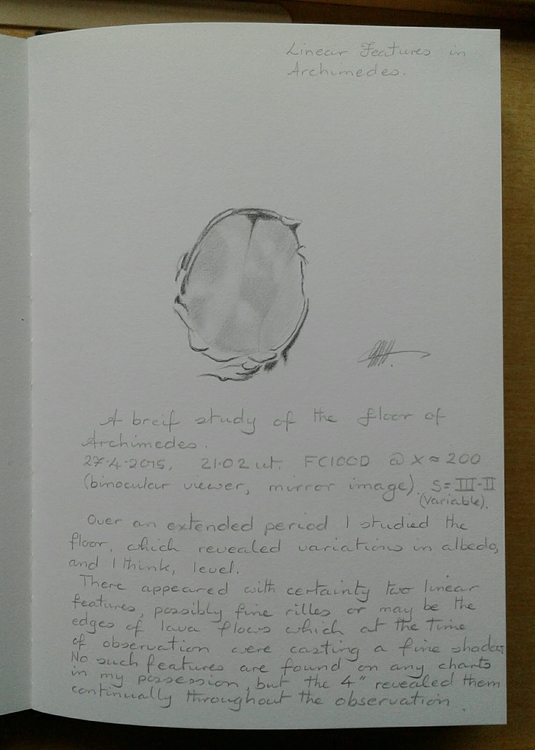 Linear Features in
Archimedes.
A breif study of the floor of
Archimedes.
27.4.2015, 21.02 ut. FC100D @ X ≈ 200
(binocular viewer, mirror image). S = III-II
(variable).
Over an extended period I studied the
floor, which revealed variations in albedo,
and I think, level.
There appeared with certainty two linear
features, possibly fine rilles or may be the
edges of lava flows which at the time
of observation were casting a fine shadow
No such features are found on any charts
in my possession, but the 4" revealed them
continually throughout the observation.